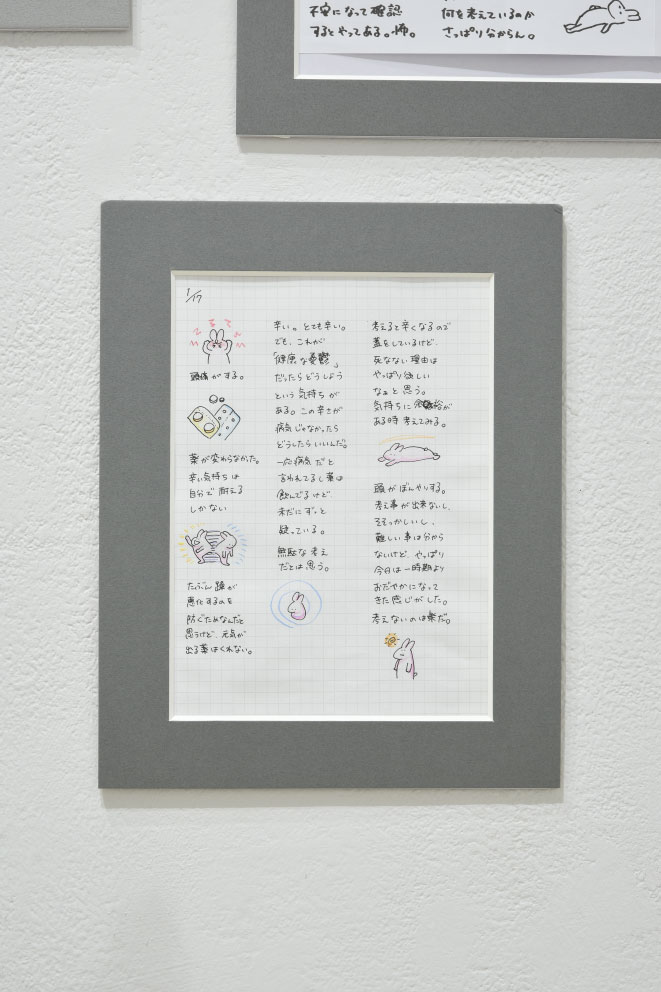 不安になって確認
するとやってある。怖。
何を考えているのか
さっぱり分からん。
1/17
頭痛がする。
薬が変わらなかった。
辛い気持ちは
自分で耐える
しかない
たぶん躁が
悪化するのを
防ぐためなんだと
思うけど、元気が
出る薬はくれない。
辛い。とても辛い。
でも、これが
「健康な憂鬱」
だったらどうしよう
という気持ちが
ある。この辛さが
病気じゃなかったら
どうしたらいいんだ。
一応病気だと
言われてるし薬は
飲んでるけど
未だにずっと
疑っている。
無駄な考え
だとは思う。
考えると辛くなるので
蓋をしているけど、
死なない理由は
やっぱり欲しい
なぁと思う。
気持ちに余裕が
ある時考えてみる。
頭がぼんやりする。
考え事が出来ないし、
そそっかしいし、
難しい事は分から
ないけど、やっぱり
今日は一時期より
おだやかになって
きた感じがした。
考えないのは楽だ。